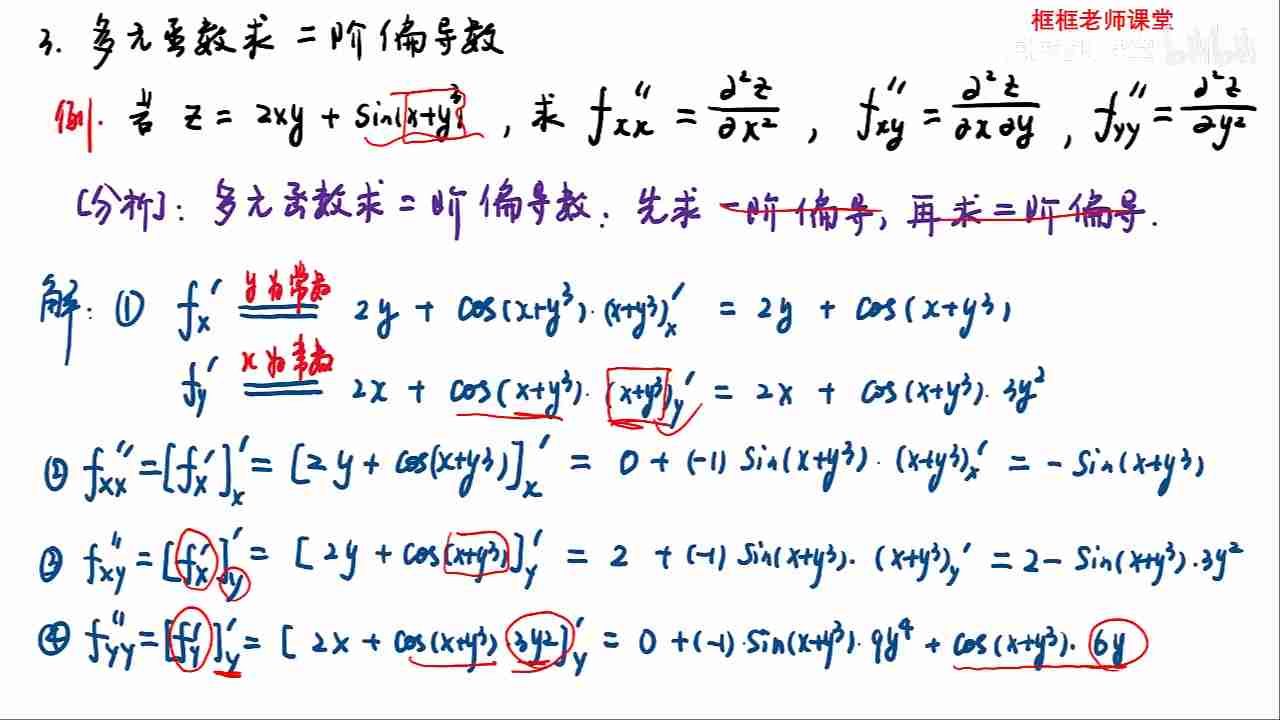 框框老师课堂
3. 多元函数求二阶偏导数
例. 若 z = 2xy + sin(x+y³), 求 f''xx = ∂²z/∂x², f''xy = ∂²z/∂x∂y, f''yy = ∂²z/∂y²
[分析]: 多元函数求二阶偏导数: 先求一阶偏导, 再求二阶偏导.
解: ① f'x ==(y为常数)== 2y + cos(x+y³)·(x+y³)'x = 2y + cos(x+y³)
f'y ==(x为常数)== 2x + cos(x+y³)·(x+y³)'y = 2x + cos(x+y³)·3y²
② f''xx = [f'x]'x = [2y + cos(x+y³)]'x = 0 + (-1) sin(x+y³)·(x+y³)'x = - sin(x+y³)
③ f''xy = [f'x]'y = [2y + cos(x+y³)]'y = 2 + (-1) sin(x+y³)·(x+y³)'y = 2 - sin(x+y³)·3y²
④ f''yy = [f'y]'y = [2x + cos(x+y³)·3y²]'y = 0 + (-1)·sin(x+y³)·9y⁴ + cos(x+y³)·6y